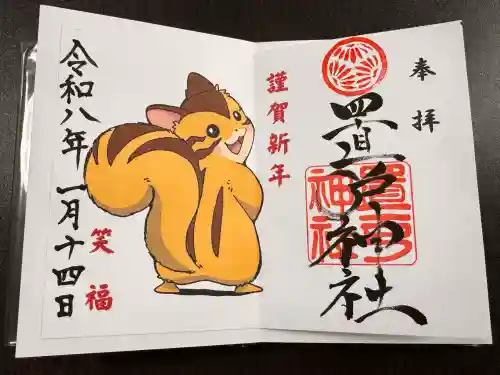 奉拝
置戸神社
置戸神社
謹賀新年
笑福
令和八年一月十四日